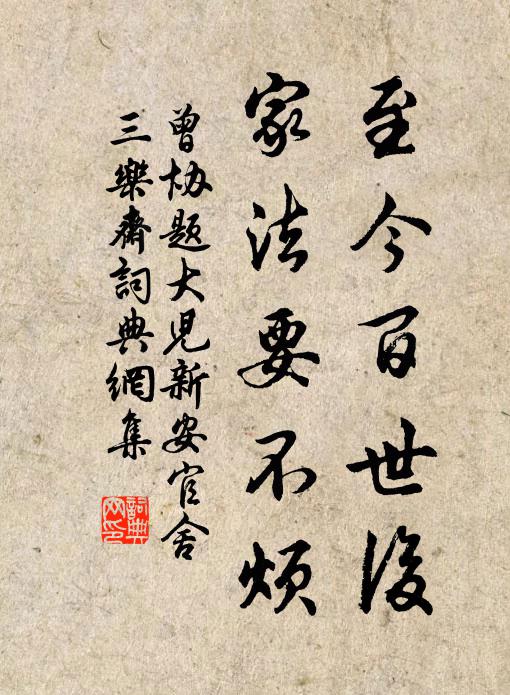 至今百世後
家法要不煩
曾協題大児新安官舍
三樂齋詞典網集
詞典
网印